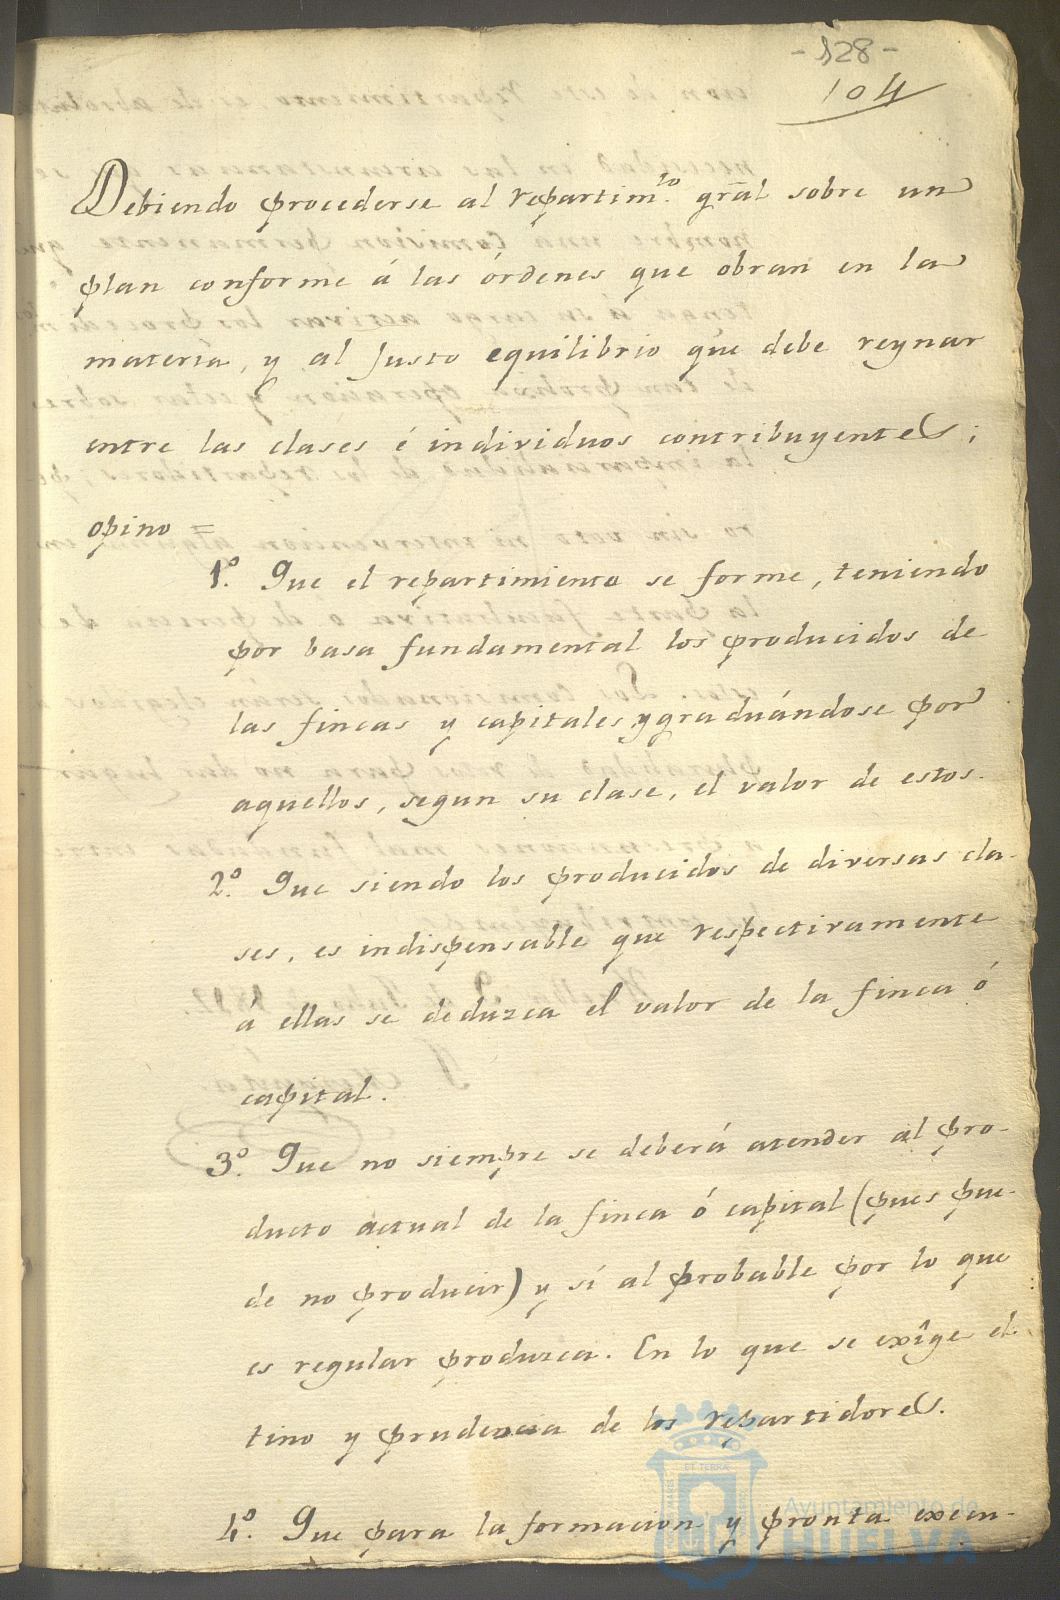 - 128 -
104
Debiendo procederse al repartim.to gral sobre un
plan conforme á las órdenes que obran en la
materia, y al justo equilibrio que debe reynar
entre las clases é individuos contribuyentes;
opino =
1º. Que el repartimiento se forme, teniendo
por basa fundamental los producidos de
las fincas y capitales, y graduándose por
aquellos, segun su clase, el valor de estos.
2º. Que siendo los producidos de diversas cla-
ses, es indispensable que respectivamente
á ellas se deduzca el valor de la finca ó
capital.
3º. Que no siempre se deberá atender al pro-
ducto actual de la finca ó capital (pues pue-
de no producir) y sí al probable por lo que
es regular produzca. En lo que se exîge el
tino y prudencia de los repartidores.
4º. Que para la formacion y pronta execu-
Ayuntamiento de
HUELVA